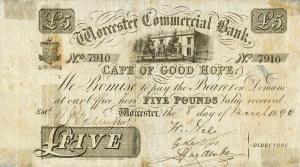 £5 Worcester Commercial Bank. £5
No 7910 No 7910
CAPE OF GOOD HOPE.
We Promise to pay the Bearer on Demand
at our Office here FIVE POUNDS Value received.
Ent Worcester, the 8 day of March 18
£FIVE
DIRECTORS